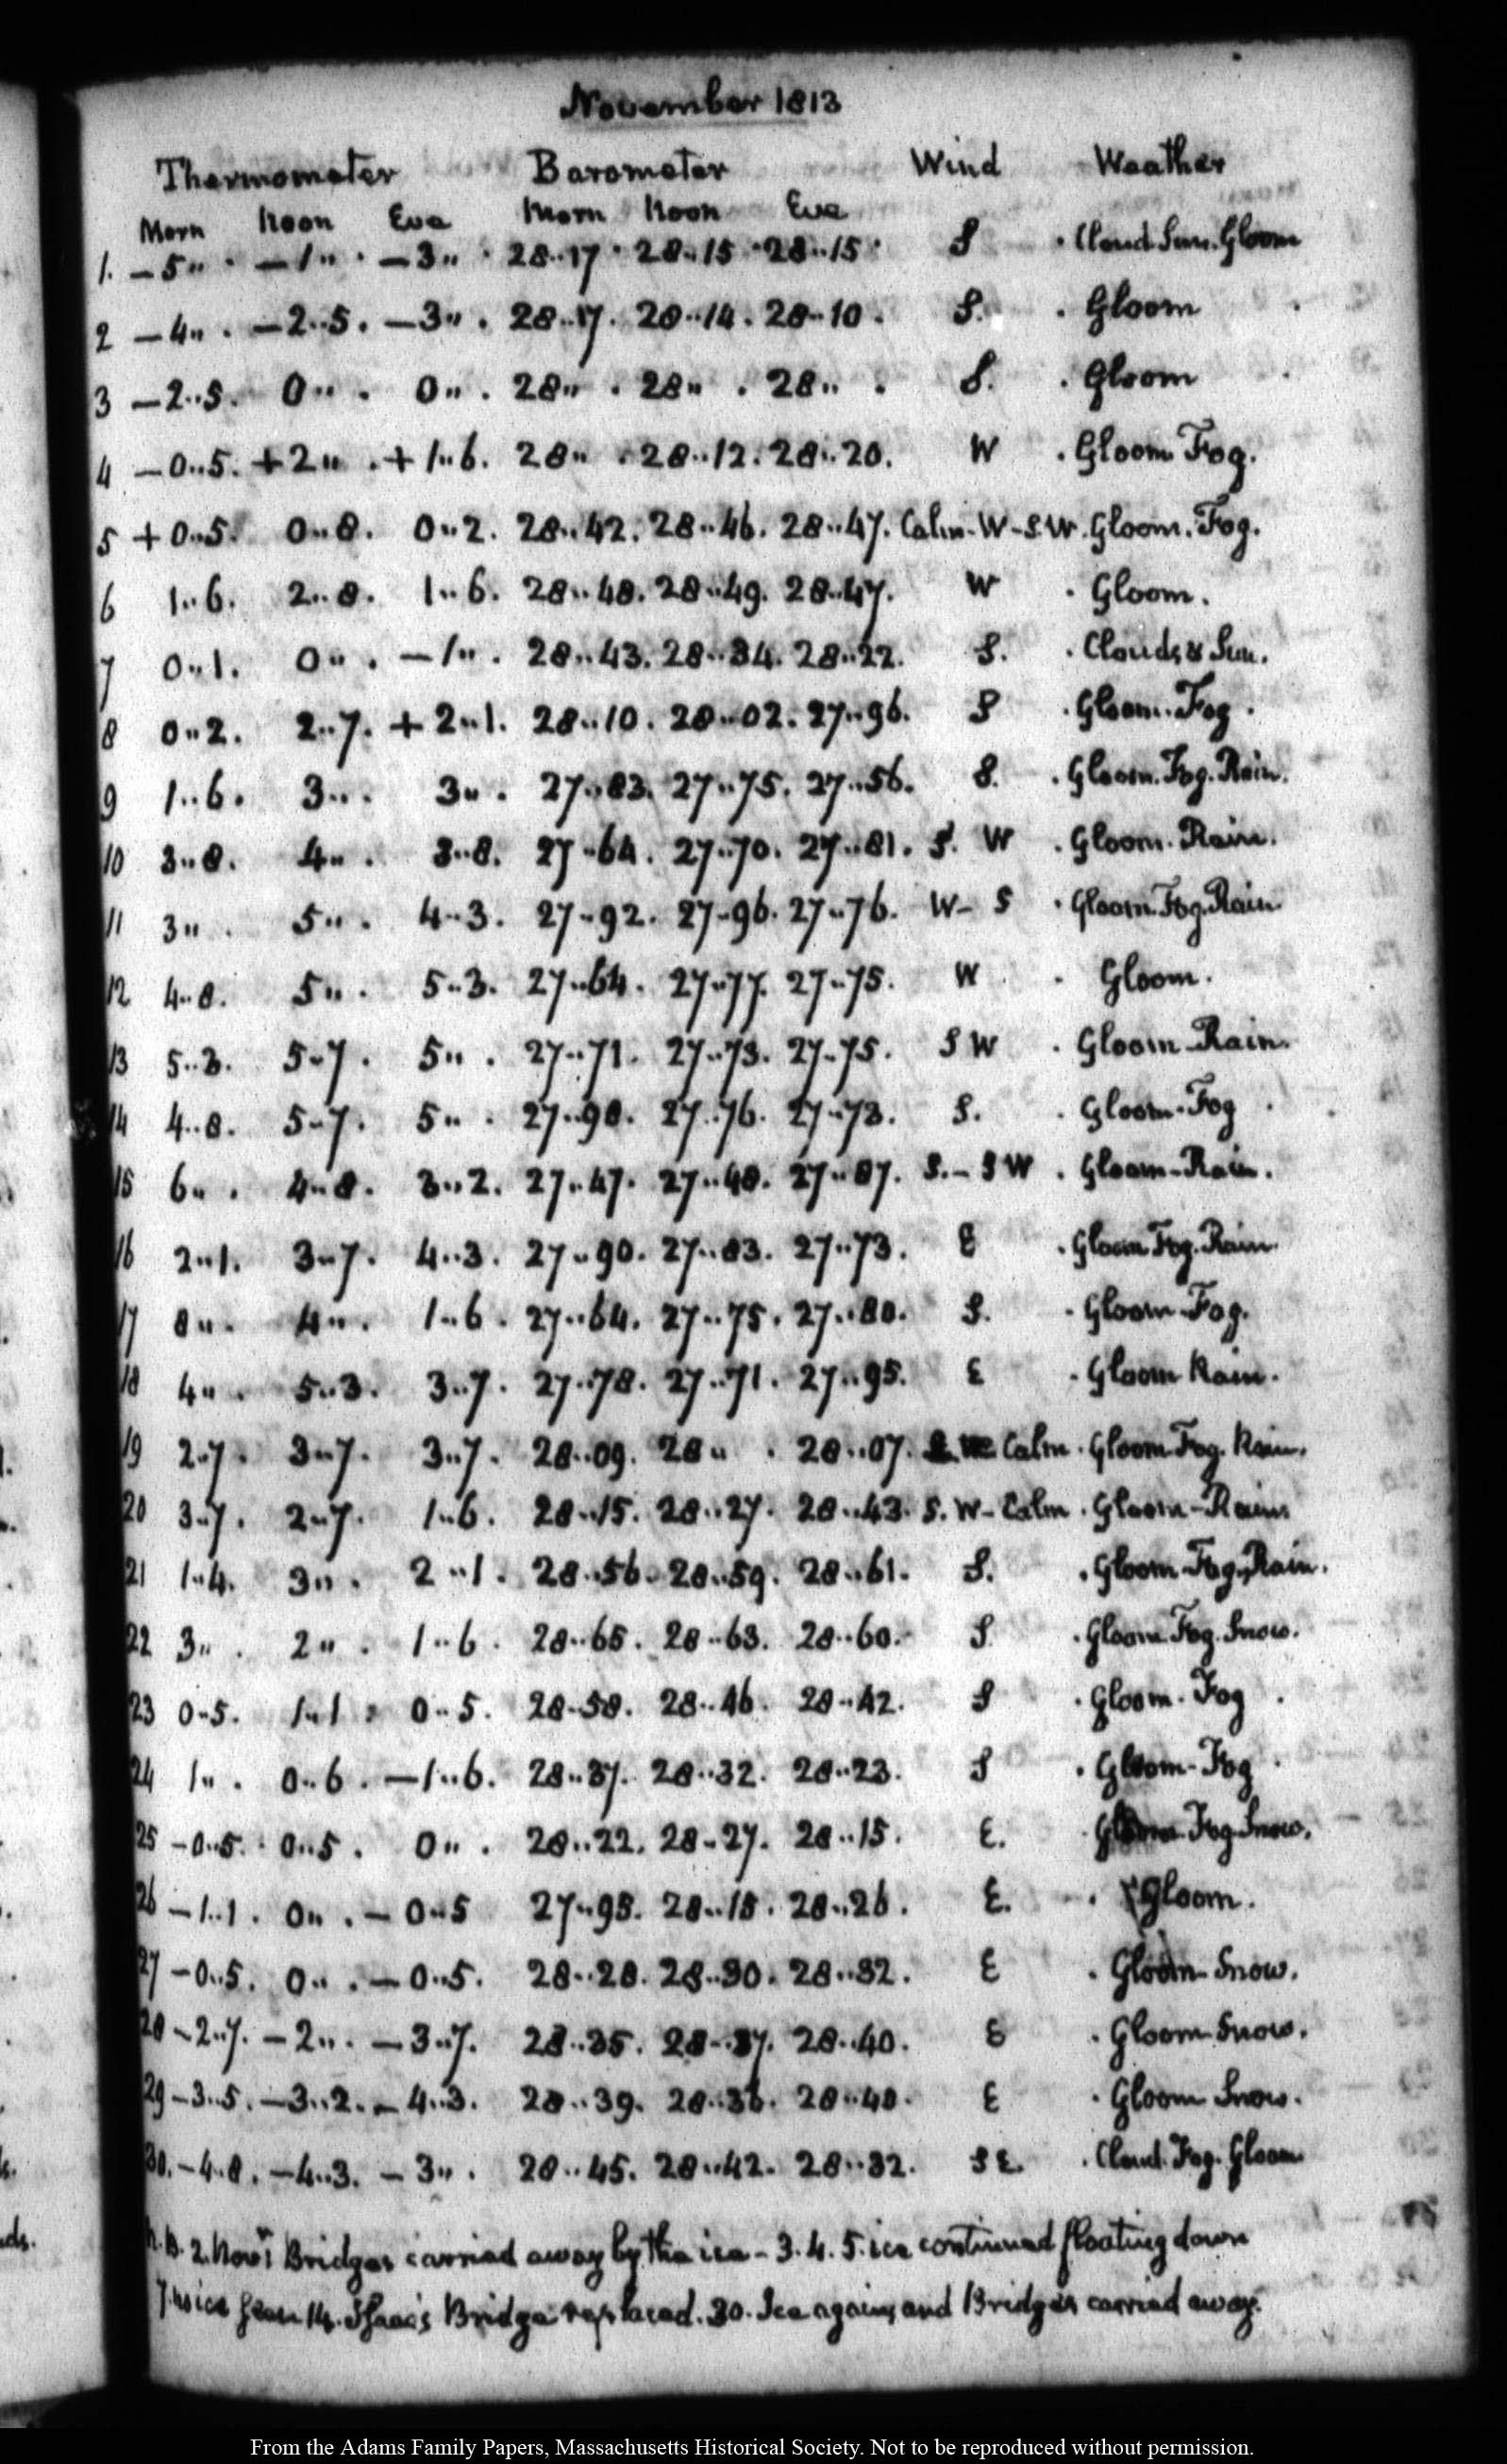 November 1813
Thermometer Barometer Wind Weather
Morn Noon Eve Morn Noon Eve
1. – 5.. . – 1.. . – 3.. . 28..17 . 28..15 . 28..15 . S . Cloud Sun. Gloom
2 – 4.. . – 2..5. – 3.. . 28..17. 28..14. 28..10. S. . Gloom
3 – 2..5. 0.. . 0.. . 28.. . 28.. . 28.. . S. . Gloom
4 – 0..5. + 2.. . + 1..6. 28.. . 28..12. 28..20. W . Gloom Fog.
5 + 0..5. 0..8. 0..2. 28..42. 28..46. 28..47. Calm - W - SW. Gloom. Fog.
6 1..6. 2..8. 1..6. 28..48. 28..49. 28..47. W . Gloom.
7 0..1. 0.. . – 1.. . 28..43. 28..34. 28..22. S. . Clouds & Sun.
8 0..2. 2..7. + 2..1. 28..10. 28..02. 27..96. S . Gloom. Fog.
9 1..6. 3... 3.. . 27..83. 27..75. 27..56. S. . Gloom. Fog. Rain.
10 3..8. 4.. . 3..8. 27..64. 27..70. 27..81. S. W . Gloom. Rain.
11 3.. . 5.. . 4..3. 27..92. 27..96. 27..76. W - S . Gloom Fog. Rain
12 4..8. 5.. . 5..3. 27..64. 27..77. 27..75. W . Gloom.
13 5..3. 5..7. 5.. . 27..71. 27..73. 27..75. S W . Gloom - Rain.
14 4..8. 5..7. 5.. . 27..90. 27..76. 27..73. S. . Gloom - Fog .
15 6.. . 4..8. 3..2. 27..47. 27..48. 27..87. S. - S W . Gloom - Rain.
16 2..1. 3..7. 4..3. 27..90. 27..83. 27..73. E . Gloom Fog. Rain
17 3... 4... 1..6. 27..64. 27..75. 27..80. S. . Gloom - Fog.
18 4.. . 5..3. 3..7. 27..78. 27..71. 27..95. E . Gloom Rain.
19 2..7. 3..7. 3..7. 28..09. 28.. . 28..07. Calm . Gloom Fog. Rain.
20 3..7. 2..7. 1..6. 28..15. 28..27. 28..43. S. W - Calm . Gloom - Rain
21 1..4. 3.. . 2..1. 28..56. 28..59. 28..61. S. . Gloom Fog. Rain.
22 3.. . 2.. . 1..6. 28..65. 28..63. 28..60. S . Gloom Fog. Snow.
23 0..5. 1..1. 0..5. 28..58. 28..46. 28..42. S . Gloom - Fog .
24 1.. . 0..6. – 1..6. 28..37. 28..32. 28..23. S . Gloom - Fog .
25 – 0..5. 0..5. 0.. . 28..22. 28..27. 28..15. E. . Gloom Fog Snow.
26 – 1..1. 0.. . – 0..5 27..95. 28..18. 28..26. E. . Gloom.
27 – 0..5. 0.. . – 0..5. 28..28. 28..30. 28..32. E . Gloom - Snow.
28 – 2..7. – 2.. . – 3..7. 28..35. 28..37. 28..40. E . Gloom - Snow.
29 – 3..5. – 3..2. – 4..3. 28..39. 28..36. 28..40. E . Gloom Snow.
30. – 4..8. – 4..3. – 3.. . 28..45. 28..42. 28..32. S E. . Cloud. Fog. Gloom
N.B. 2. Novr. Bridges carried away by the ice - 3. 4. 5. ice continued floating down
14. Isaac's Bridge replaced. 30. Ice again, and Bridges carried away.
From the Adams Family Papers, Massachusetts Historical Society. Not to be reproduced without permission.